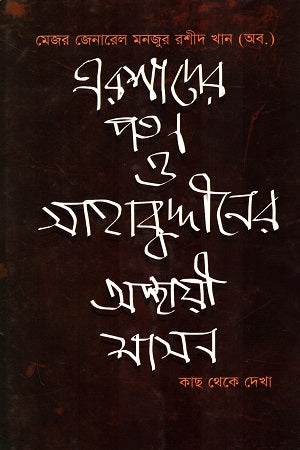 মেজর জেনারেল মনজুর রশীদ খান (অব.)
এরশাদের
পতন
ও
সাহাবুদ্দীনের
অস্থায়ী
শাসন
কাছ থেকে দেখা